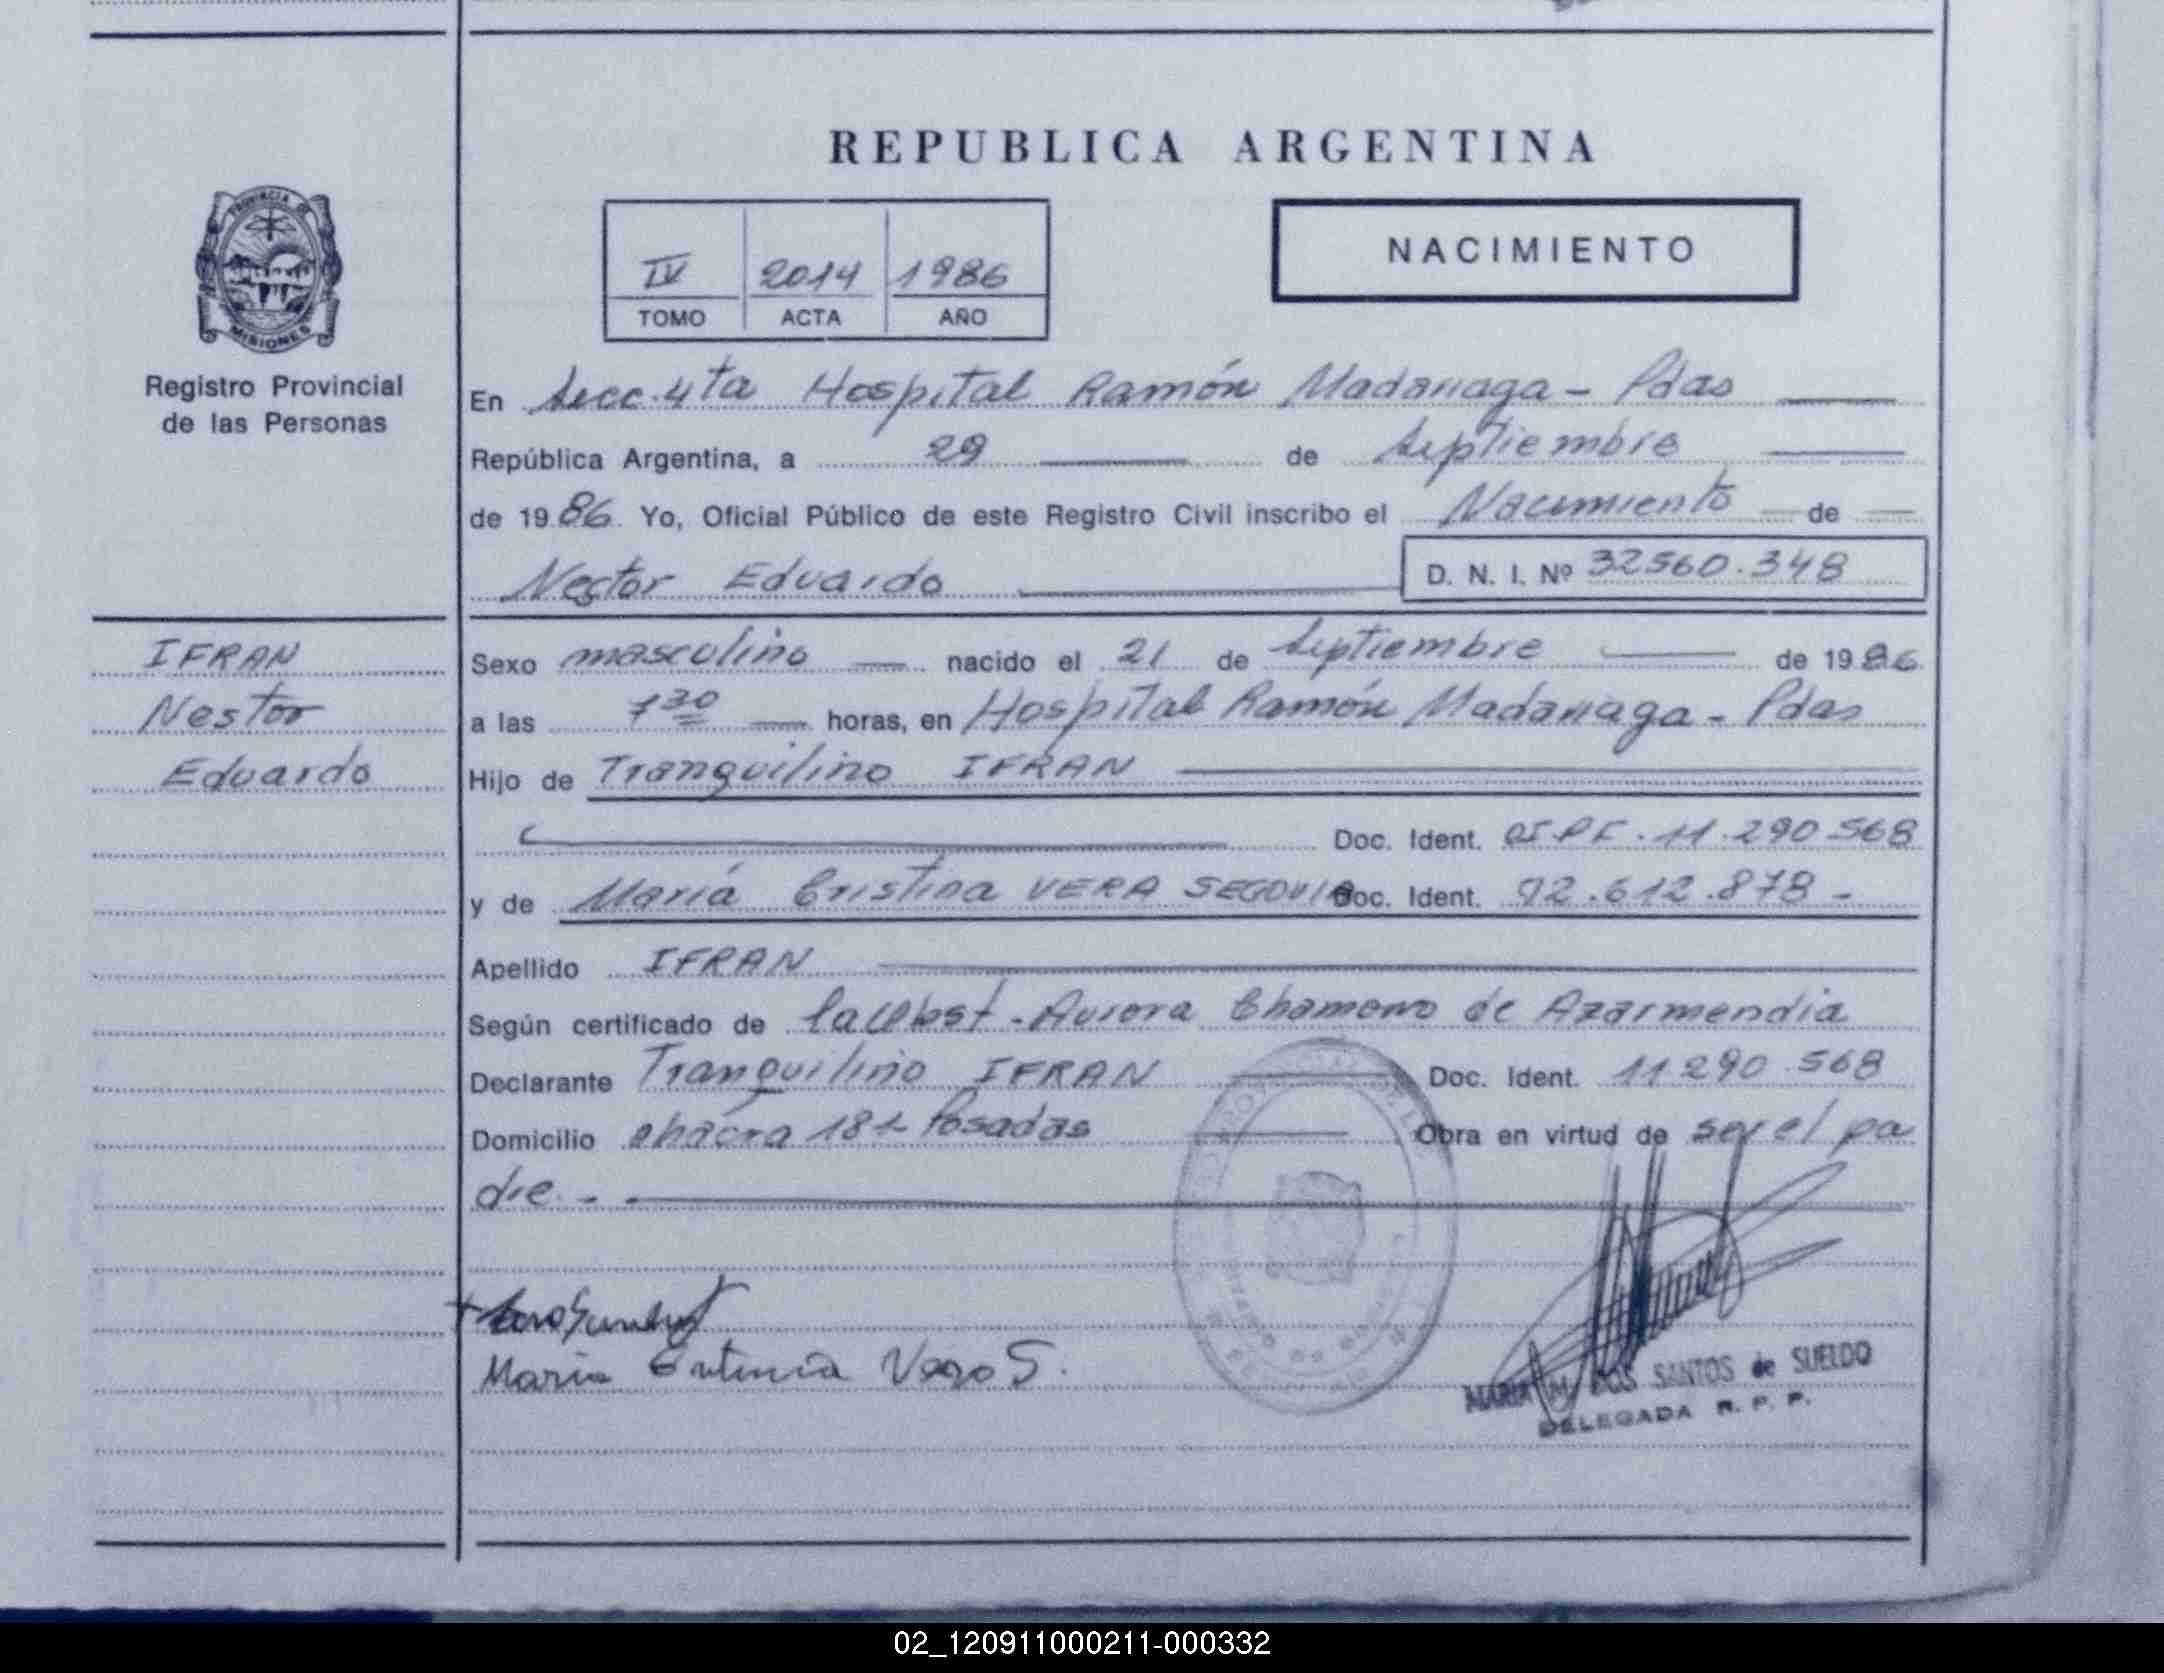 REPUBLICA ARGENTINA
PROVINCIA DE
MISIONES
Registro Provincial
de las Personas
IV 2014 1986
TOMO ACTA AÑO
NACIMIENTO
En Secc. 4ta Hospital Ramón Madariaga - Pdas
República Argentina, a 29 de Septiembre
de 1986. Yo, Oficial Público de este Registro Civil inscribo el Nacimiento de
Nestor Eduardo D. N. I. Nº 32560.348
IFRAN
Nestor
Eduardo
Sexo masculino nacido el 21 de Septiembre de 1986
a las 7 30 horas, en Hospital Ramón Madariaga - Pdas
Hijo de Tranquilino IFRAN
Doc. Ident. 11.290.568
y de María Cristina VERA SEGOVIA Doc. Ident. 92.612.878 -
Apellido IFRAN
Según certificado de Aurora Chamorro de Azarmendia
Declarante Tranquilino IFRAN Doc. Ident. 11290.568
Domicilio chacra 181 Posadas Obra en virtud de ser el pa
dre. -
María Vera S.
MARIA M. DOS SANTOS de SUELDO
DELEGADA R. P. P.
02_120911000211-000332